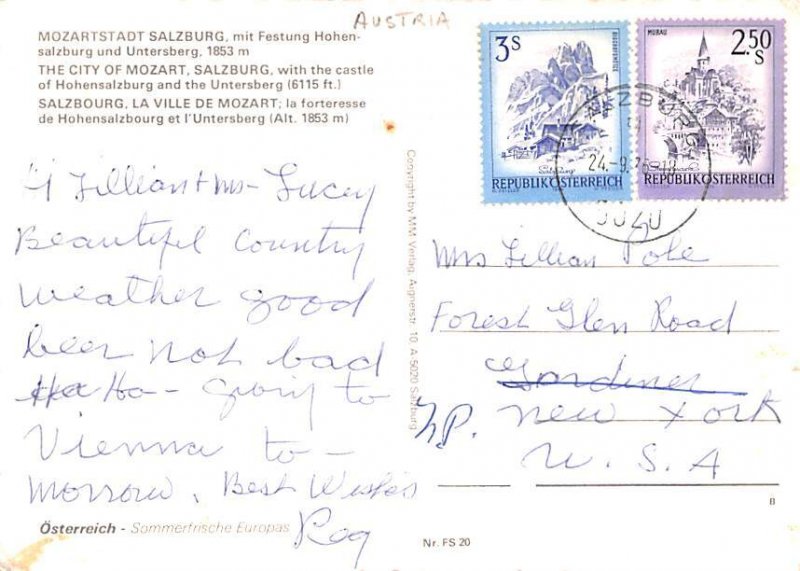 AUSTRIA
MOZARTSTADT SALZBURG, mit Festung Hohen-
salzburg und Untersberg, 1853 m
THE CITY OF MOZART, SALZBURG, with the castle
of Hohensalzburg and the Untersberg (6115 ft.)
SALZBOURG, LA VILLE DE MOZART; la forteresse
de Hohensalzbourg et l'Untersberg (Alt. 1853 m)
Hi Lillian + Mrs - Lucey
Beautiful Country
weather good
beer not bad
Ha Ho - going to
Vienna to -
morrow. Best Wishes
Reg
Österreich - Sommerfrische Europas
Copyright by MM-Verlag, Aignerstr. 10, A-5020 Salzburg
3 S
BISCHOFSMÜTZE
Salzburg
REPUBLIK ÖSTERREICH
MURAU
2.50 S
REPUBLIK ÖSTERREICH
SALZBURG
24.-9.
5020
Mrs Lillian Pole
Forest Glen Road
Gardiner
N.P. New York
U.S.A
B
Nr. FS 20